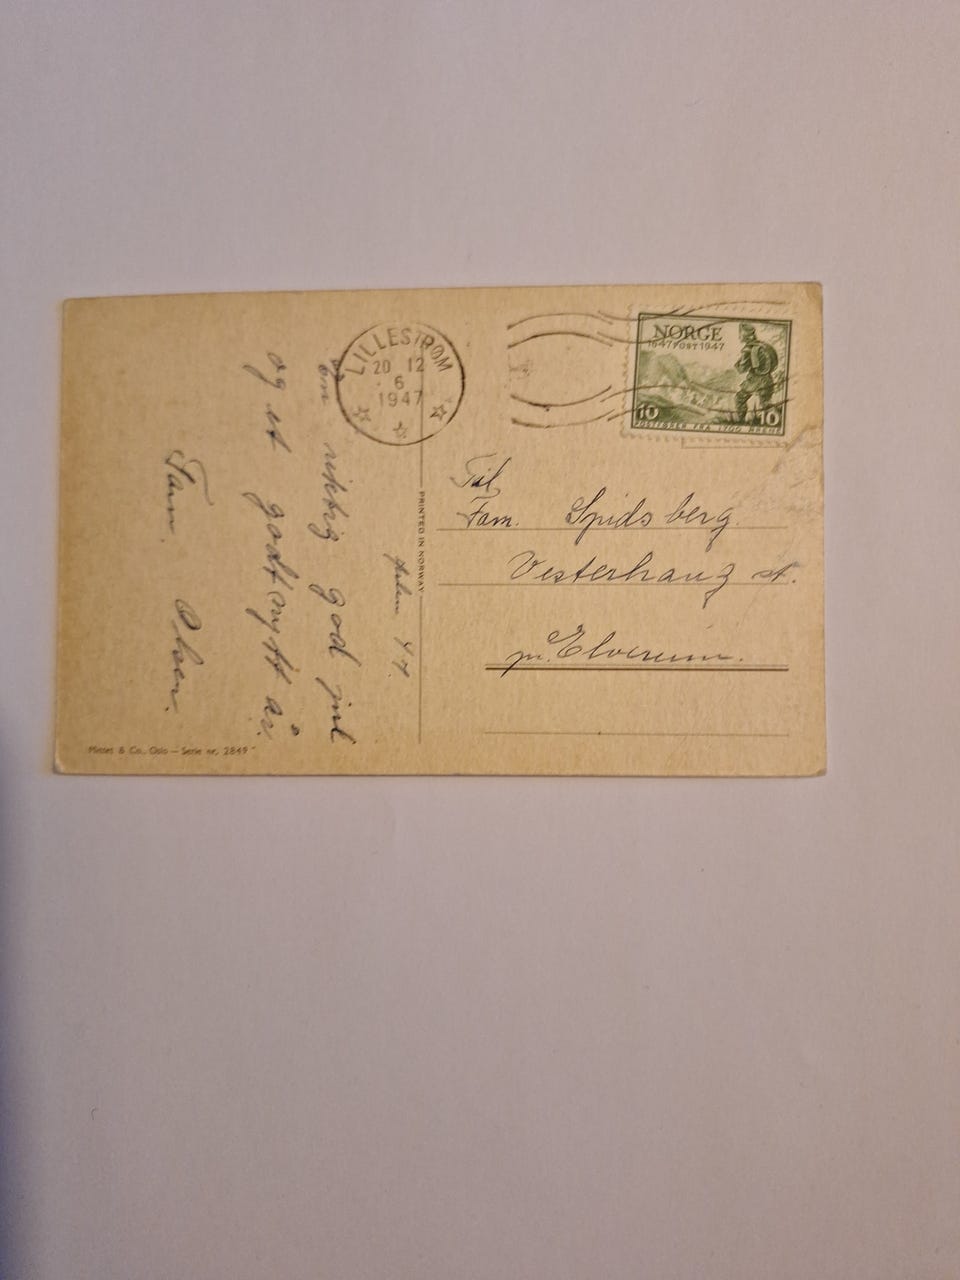 LILLESTRØM
20 12
6
1947
NORGE
1647 POST 1947
10 10
POSTFØRER FRA 1700 ÅRENE
Til
Fam. Spidsberg.
Vesterhaug st.
pr. Elverum.
PRINTED IN NORWAY
Julen 47
En riktig god jul
og et godt nytt år.
Fam. Olsen.
Mittet & Co., Oslo — Serie nr. 2849